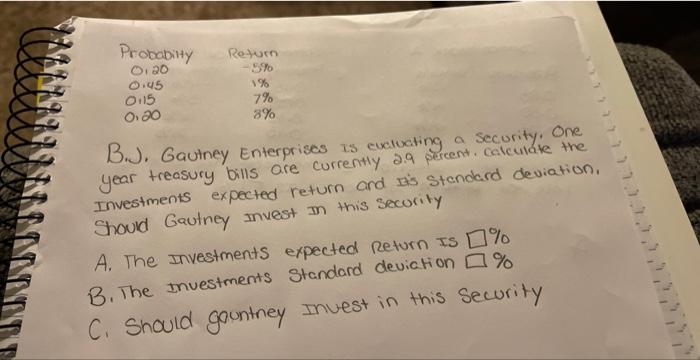 Probability Return
0.20 -5%
0.45 1%
0.15 7%
0.20 8%
B.J. Gautney Enterprises is evaluating a security. One
year treasury bills are currently 2.9 percent. calculate the
Investments expected return and it's standard deviation.
Should Gautney invest in this security
A. The investments expected Return Is □%
B. The investments Standard deviation □%
C. Should gauntney Invest in this Security